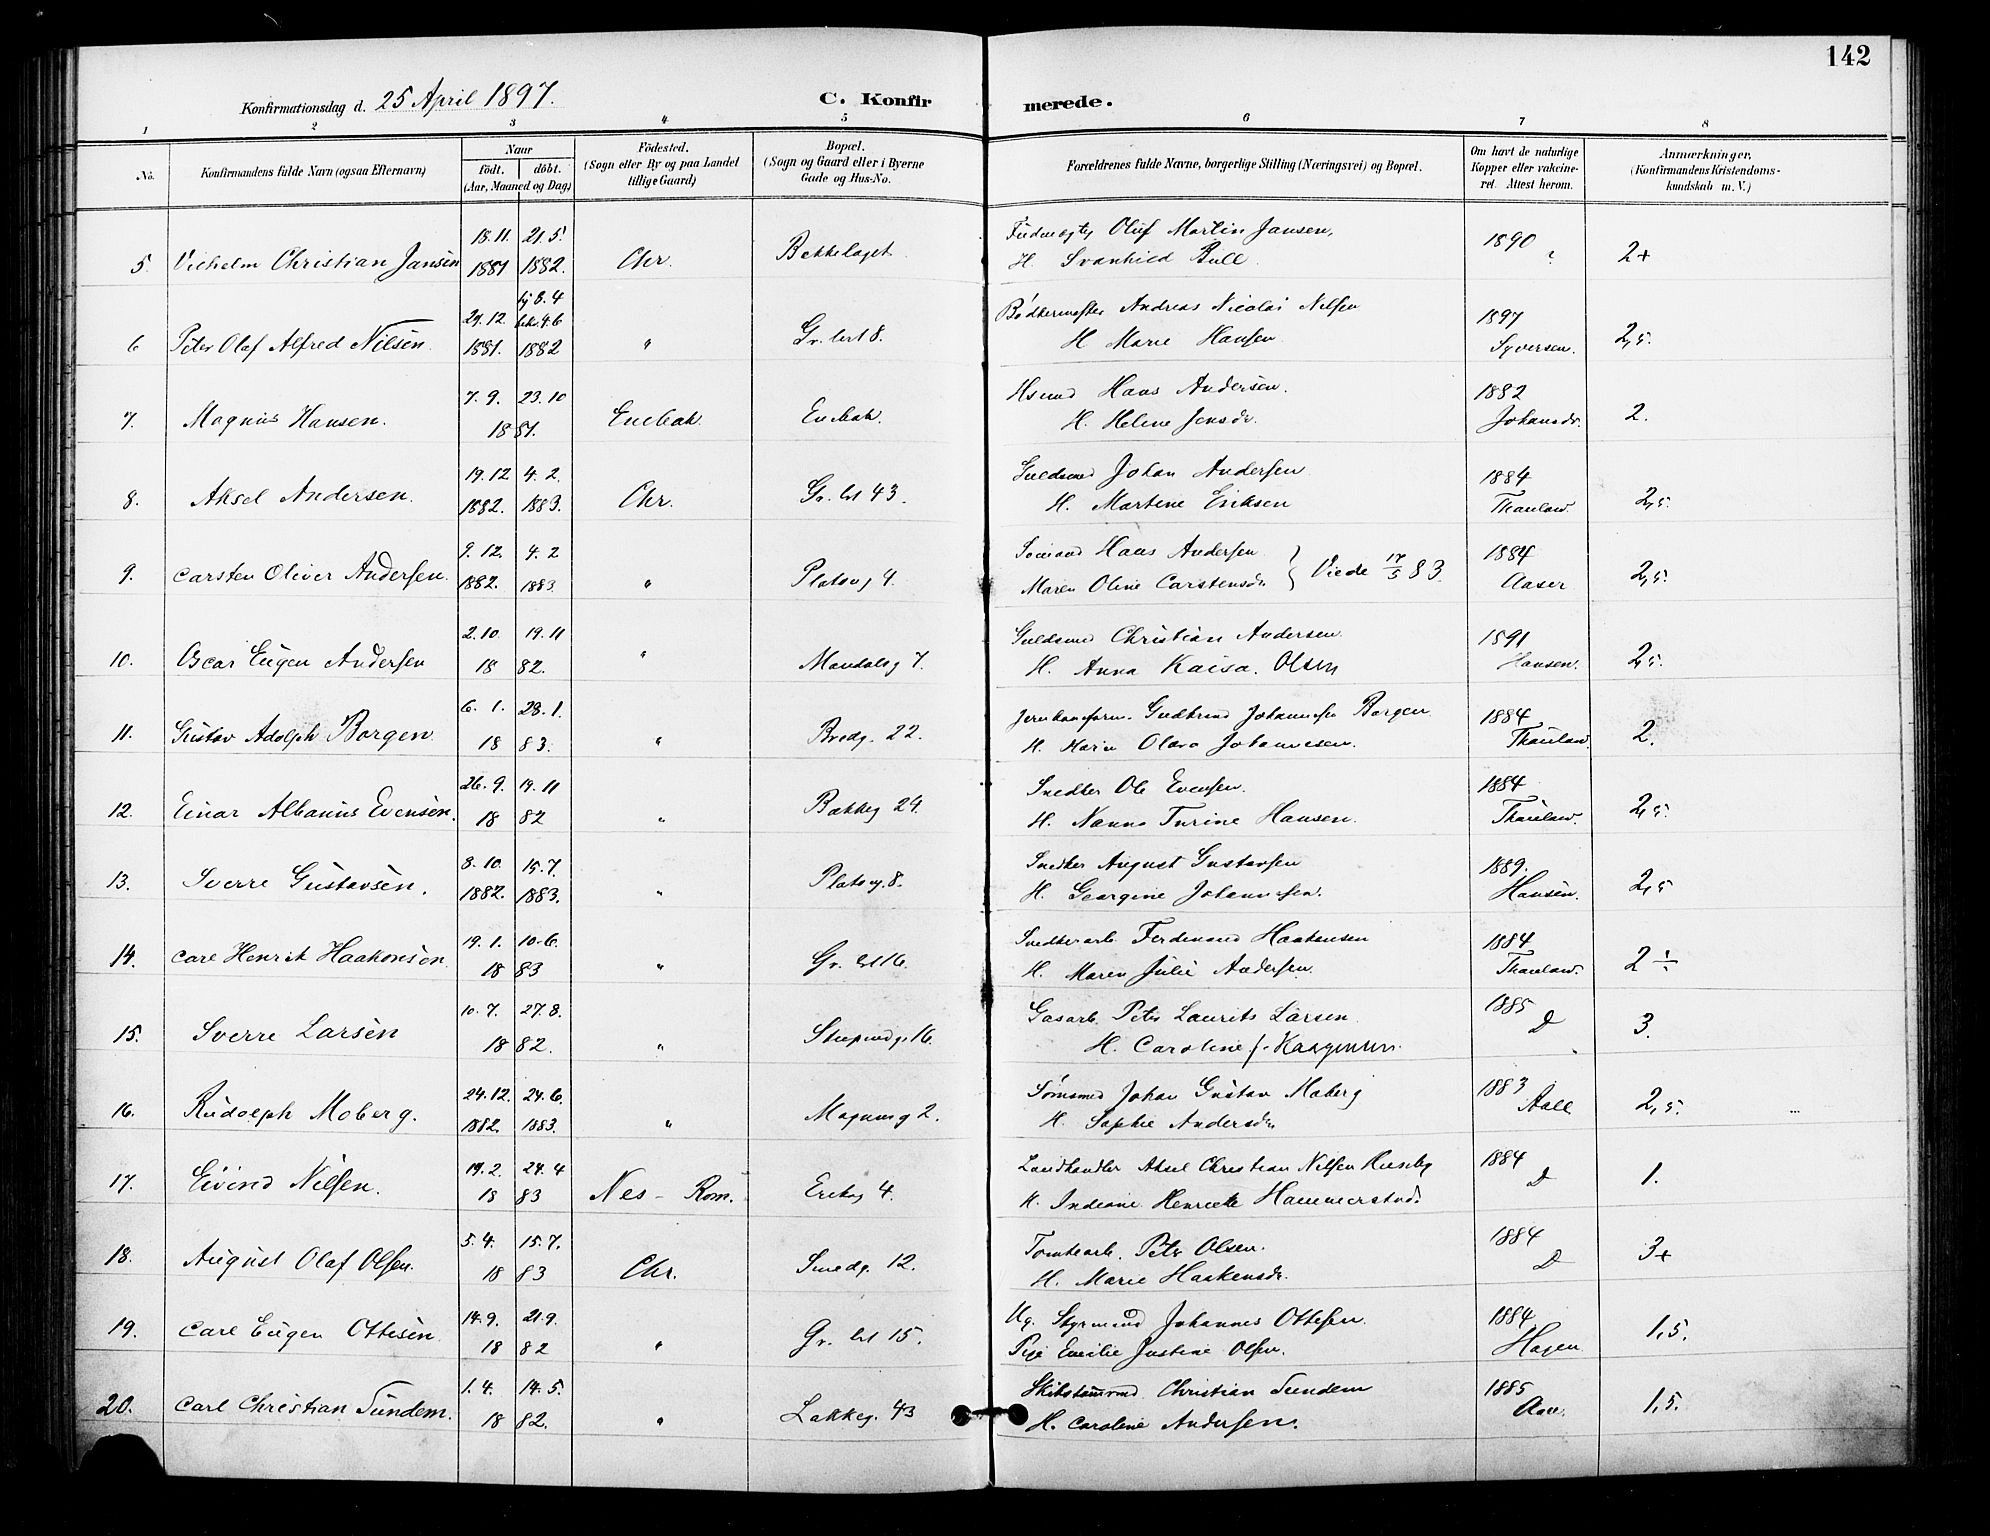 142
Konfirmationsdag d. 25 April 1897. C. Konfirmerede.
1 2 3 4 5 6 7 8
No. Konfirmandens fulde Navn (ogsaa Efternavn) Naar Födt. döbt. (Aar, Maaned og Dag) Födested. (Sogn eller By og paa Landet tillige Gaard) Bopæl. (Sogn og Gaard eller i Byerne Gade og Hus-No. Forældrenes fulde Navne, borgerlige Stilling (Næringsvei) og Bopæl. Om havt de naturlige Kopper eller vakcineret. Attest herom. Anmærkninger. (Konfirmandens Kristendomskundskab m. V.)
18.11. 21.5. Oluf Martin Jansen, 1890
5. Vilhelm Christian Jansen 1881 1882. Chr. Bekkelaget H. Svanhild Bull. 2+
8.4
29.12. 4.6 Bødkermester Andreas Nicolai Nilsen 1897
6 Peter Olaf Alfred Nilsen. 1881. 1882 " Gr. lert 8. H. Marie Hansen Syversen. 2,5.
7.9. 23.10 Hsmd Hans Andersen. 1882
7. Magnus Hansen. 18 81. Enebak Enebak. H. Helene Jensdr. Johansdr. 2.
19.12 4.2. Guldsmed Johan Andersen 1884
8. Aksel Andersen. 1882. 1883. Chr. Gr. lrt 43. H. Martine Eriksen Thaulow. 2,5.
9.12. 4.2 Sømand Hans Andersen 1884
9. Carsten Oliver Andersen. 1882. 1883. " Platoug 4. Maren Oline Carstensdr } Viede 17/5 83. Aaser 2,5.
2.10. 19.11 Guldsmed Christian Andersen. 1891
10. Oscar Eugen Andersen 18 82. " Mandalsg 7. H. Anna Kaisa. Olsen Hansen. 2,5.
6.1. 28.1. Gudbrand Johannesen Borgen 1884
11. Gustav Adolph Borgen 18 83. " Bredg. 22. H. Marie Olava Johannesen. Thaulow. 2.
26.9. 19.11 Snedker Ole Evensen. 1884
12. Einar Albanus Evensen. 18 82 " Bakkeg 24. H. Nanna Turine Hansen. Thaulow. 2,5.
8.10. 15.7. Snedker August Gustavsen 1889.
13. Sverre Gustavsen. 1882. 1883. " Platoug. 8. H. Georgine Johannesen. Hansen. 2,5
19.1. 10.6. Snedkerarb. Ferdinand Haakensen 1884
14. Carl Henrik Haakonsen. 18 83 " Gr. lrt 16. H. Maren Julie Andersen. Thaulow. 2÷
10.7. 27.8. Gasarb. Peter Laurits Larsen 1885
15. Sverre Larsen 18 82. " 16. H. Caroline f. D 3.
24.12. 24.6. Johan Gustav Moberg 1883
16. Rudolph Moberg. 1882. 1883. " Magnusg 2. H. Sophie Andersdr Aall 2,5.
19.2. 24.4 Landhandler Aksel Christian Nilsen 1884
17. Eivind Nilsen. 18 83 Nes - Rom. Eriksg 4. H. Indiane Henriette D 1.
5.4. 15.7. Tomtearb. Peter Olsen. 1884
18. August Olaf Olsen. 18 83 Chr. Smedg. 12. H. Marie Haakensdr. D 3+
14.9. 21.9. Ug. Styrmand Johannes Ottesen. 1884
19. Carl Eugen Ottesen 18 82 " Gr. lrt 15. Pige Emilie Justine Olsen. Hagen 1,5.
1.4. 14.5. Skibstømmrmd Christian Sundem 1885
20. Carl Christian Sundem. 18 82. " Lakkeg. 43 H. Caroline Andersen. 1,5.